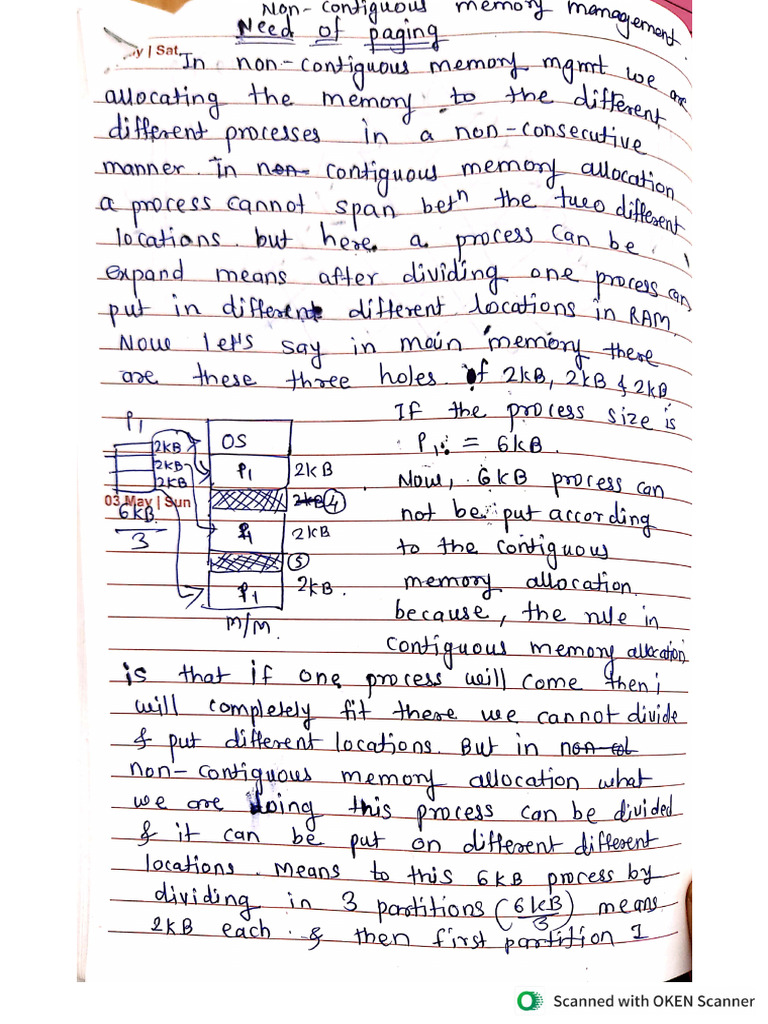 Non-contiguous memory management.
Need of paging
y | Sat
In non-contiguous memory mgmt we are
allocating the memory to the different
different processes in a non-consecutive
manner. In non- contiguous memory allocation
a process cannot span betn the two different
locations. but here a process can be
expand means after dividing one process can
put in different different locations in RAM.
Now let's say in main memory there
are these three holes of 2KB, 2KB & 2KB
If the process size is
P1 = 6KB.
Now, 6KB process can
not be put according
to the contiguous
memory allocation.
because, the rule in
contiguous memory allocation
P1
2KB
2KB
2KB
03 May | Sun
6KB
3
OS
P1 2KB
2KB 4
P1 2KB
5
P1 2KB.
M/M.
is that if one process will come then i
will completely fit there we cannot divide
& put different locations. But in non-col
non-contiguous memory allocation what
we are doing this process can be divided
& it can be put on different different
locations. Means to this 6KB process by
dividing in 3 partitions (6KB/3) means
2KB each. & then first partition 1
Scanned with OKEN Scanner